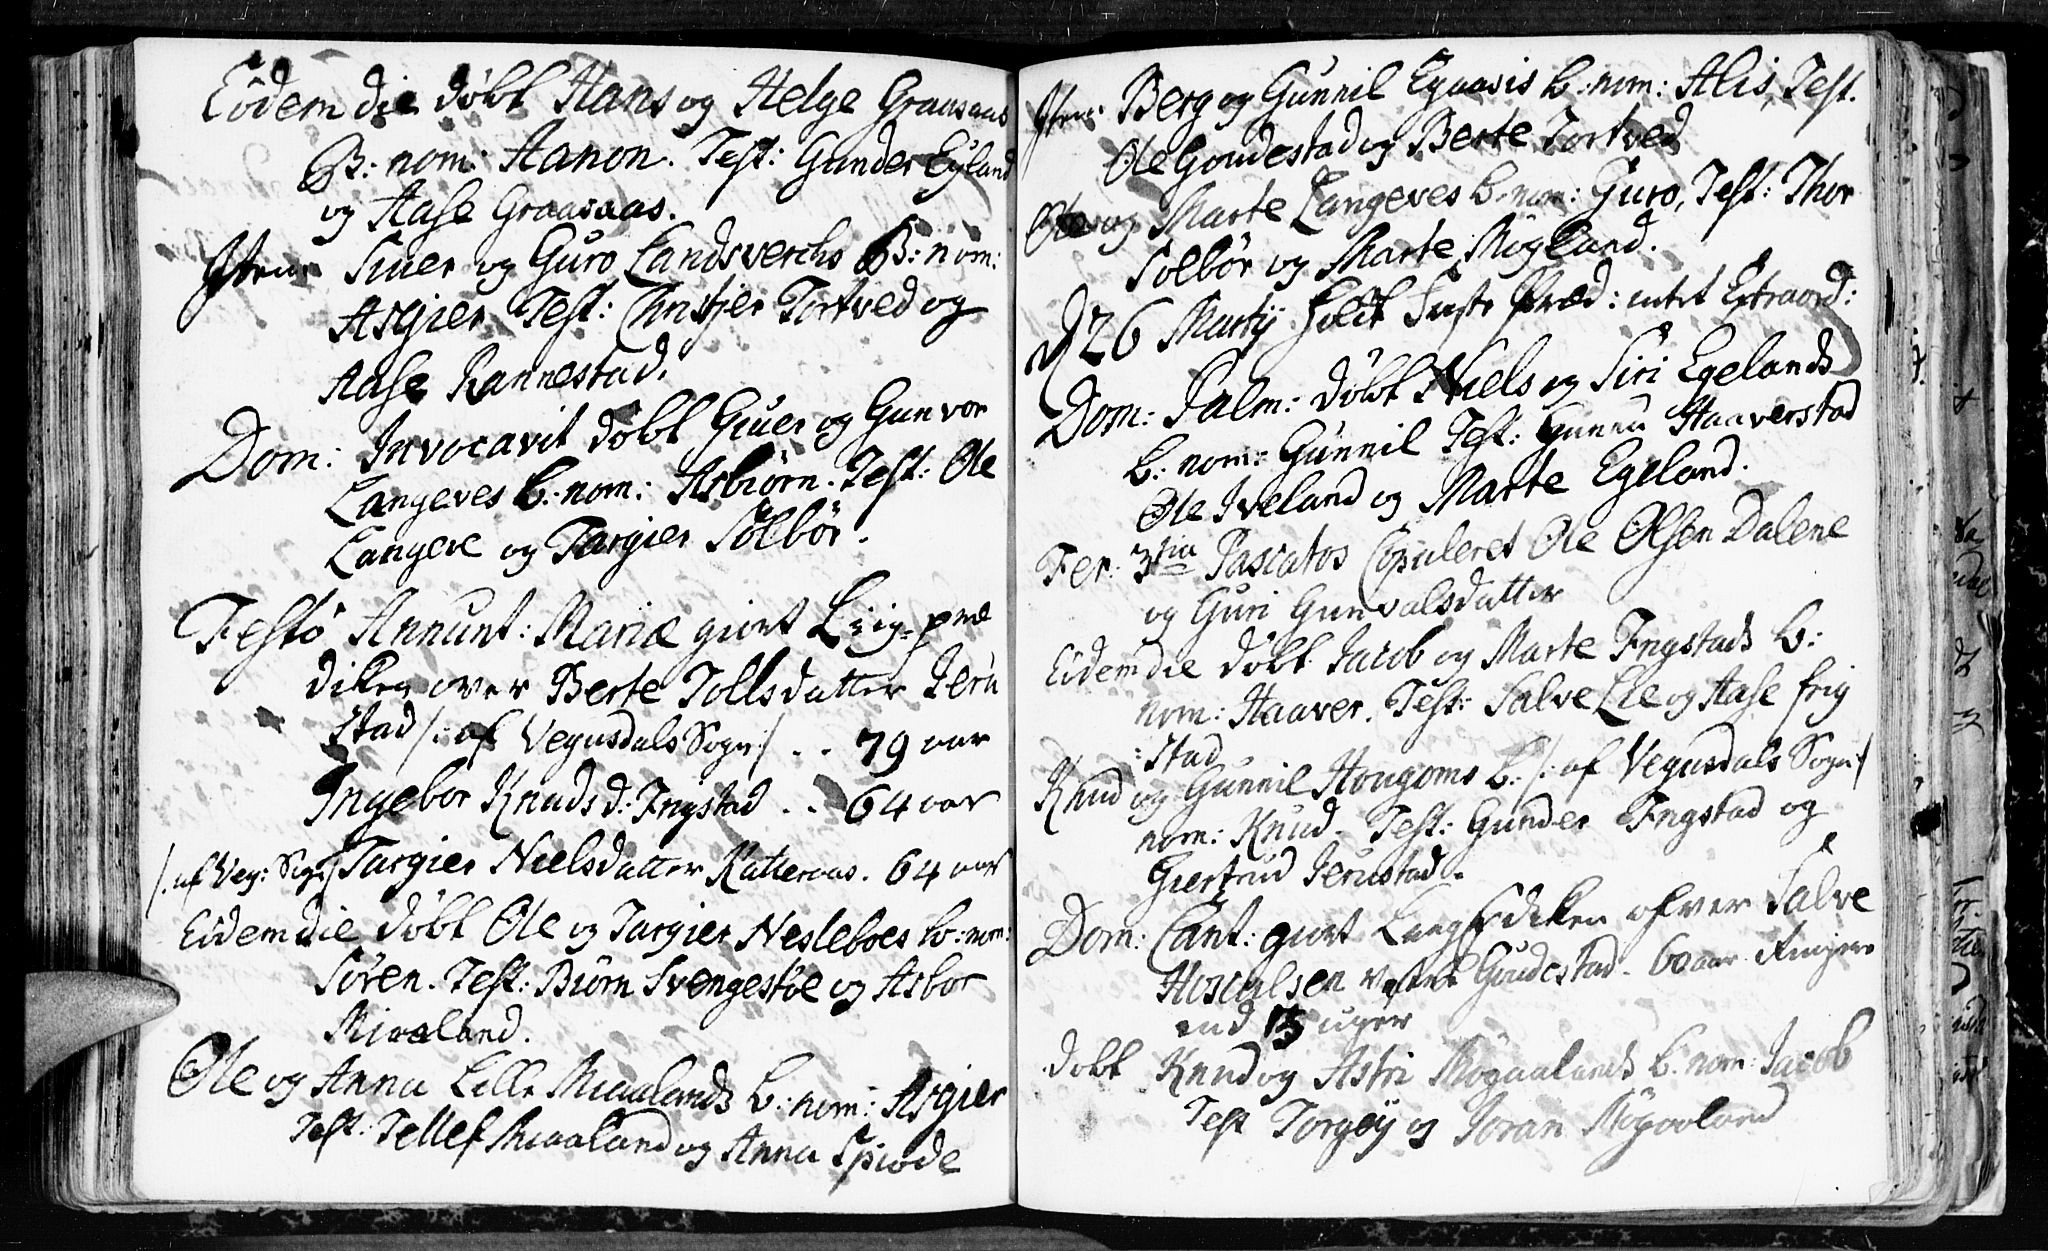 Eodem die döbt Hans og Helge Graasaas
B: nom: Hanon. Test: Gunder Eyland
og Aase Graasaas.
Item Siuer og Guro Landsverchs B: nom:
Asgier Test: Christjer Tortved og
Aase Rannestad.
Dom: Invocavit döbt Giuer og Gunvor
Langeves b: nom: Asbiörn. Test: Ole
Langeve og Targier Sölbör.
Festo Annunt: Mariæ giort Liig-præ
diken over Berte Tollsdatter Jeru
stad /: af Vegusdals Sogn :/ .. 79 aar
Ingebor Knudsd: Ingstad .. 64 aar
/: af Veg: Sogn :/ Targier Nielsdatter Katteraas. 64 aar
Eodem die döbt Ole og Targier Nesleboes b: nom:
Sören. Test: Biörn Svengestöe og Asbor
Miaaland.
Ole og Anna Lille Miaalands b: nom: Asgier
Test: Tellef Miaaland og Anna Spiode
Item Berg og Gunnil Egaasis b: nom: Alis, Test.
Ole Goudestad og Berte Tortved
Ole og Marte Langeves b: nom: Guro, Test: Thor
Solbör og Marte Mögland.
d 26 Martij holdt Præd: intet Extraord:
Dom: Palm: döbt Niels og Siri Egelands
b: nom: Gunnil Test: Haaverstad
Ole Iveland og Marte Egeland.
Fer: 3tia Pascatos Copuleret Ole Olsen Dalene
og Guri Gunvalsdatter
Eodem die döbt Jacob og Marte Ingstads b:
nom: Haaver. Test: Salve Lie og Aase frig
:stad
Knud og Gunnil Hougoms b: /: af Vegusdals Sogn :/
nom: Knud. Test: Gunder Ingstad og
Giertrud Jerustad.
Dom: Cant: giort diken ofver Salve
Goudestad. 60 aar Ringere
end 13 uger
döbt Knud og Astri Mögaalands b. nom: Jacob
Test Torgöy og Joran Mögaaland